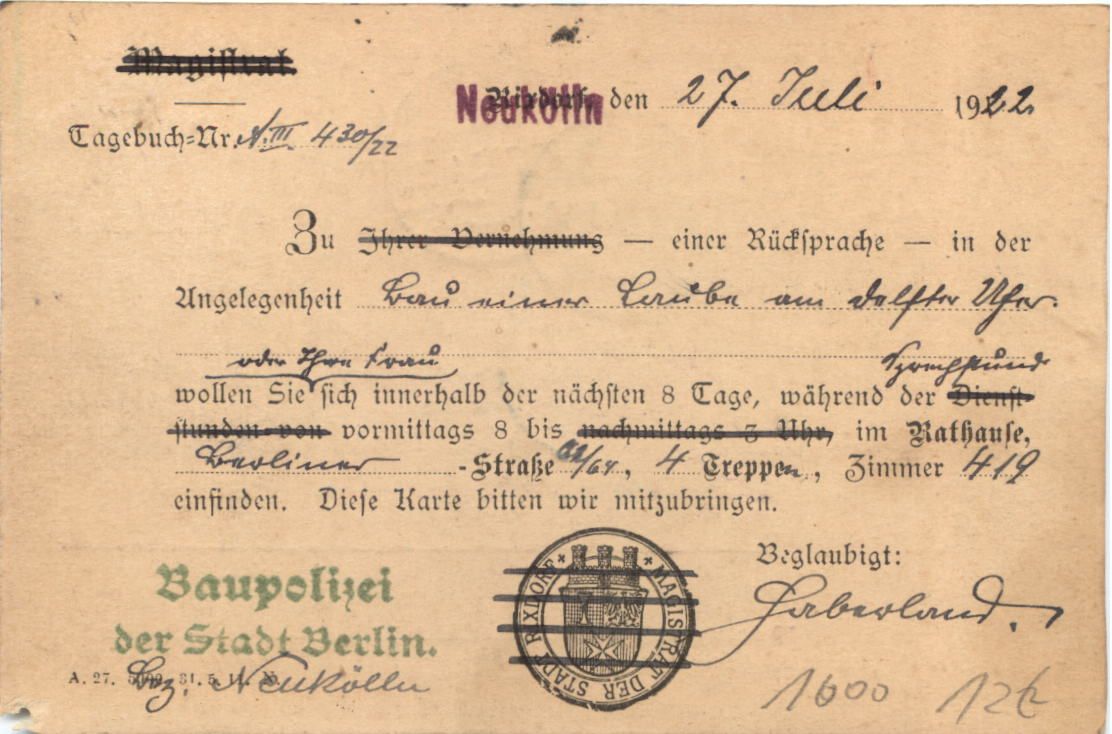 Magistrat.
Neukölln
Rixdorf, den 27. Juli 1922
Tagebuch-Nr. A. III 430/22
Zu Ihrer Vernehmung — einer Rücksprache — in der
Angelegenheit Bau einer Laube am Delfter Ufer.
oder Ihre Frau Sprechstund
wollen Sie sich innerhalb der nächsten 8 Tage, während der Dienst-
stunden von vormittags 8 bis nachmittags 3 Uhr, im Rathause,
Berliner -Straße 62/64, 4 Treppen, Zimmer 419
einfinden. Diese Karte bitten wir mitzubringen.
Beglaubigt:
Haberland.
MAGISTRAT DER STADT RIXDORF
Baupolizei
der Stadt Berlin.
A. 27. 31. 5. 11.
Bez. Neukölln
1600 12